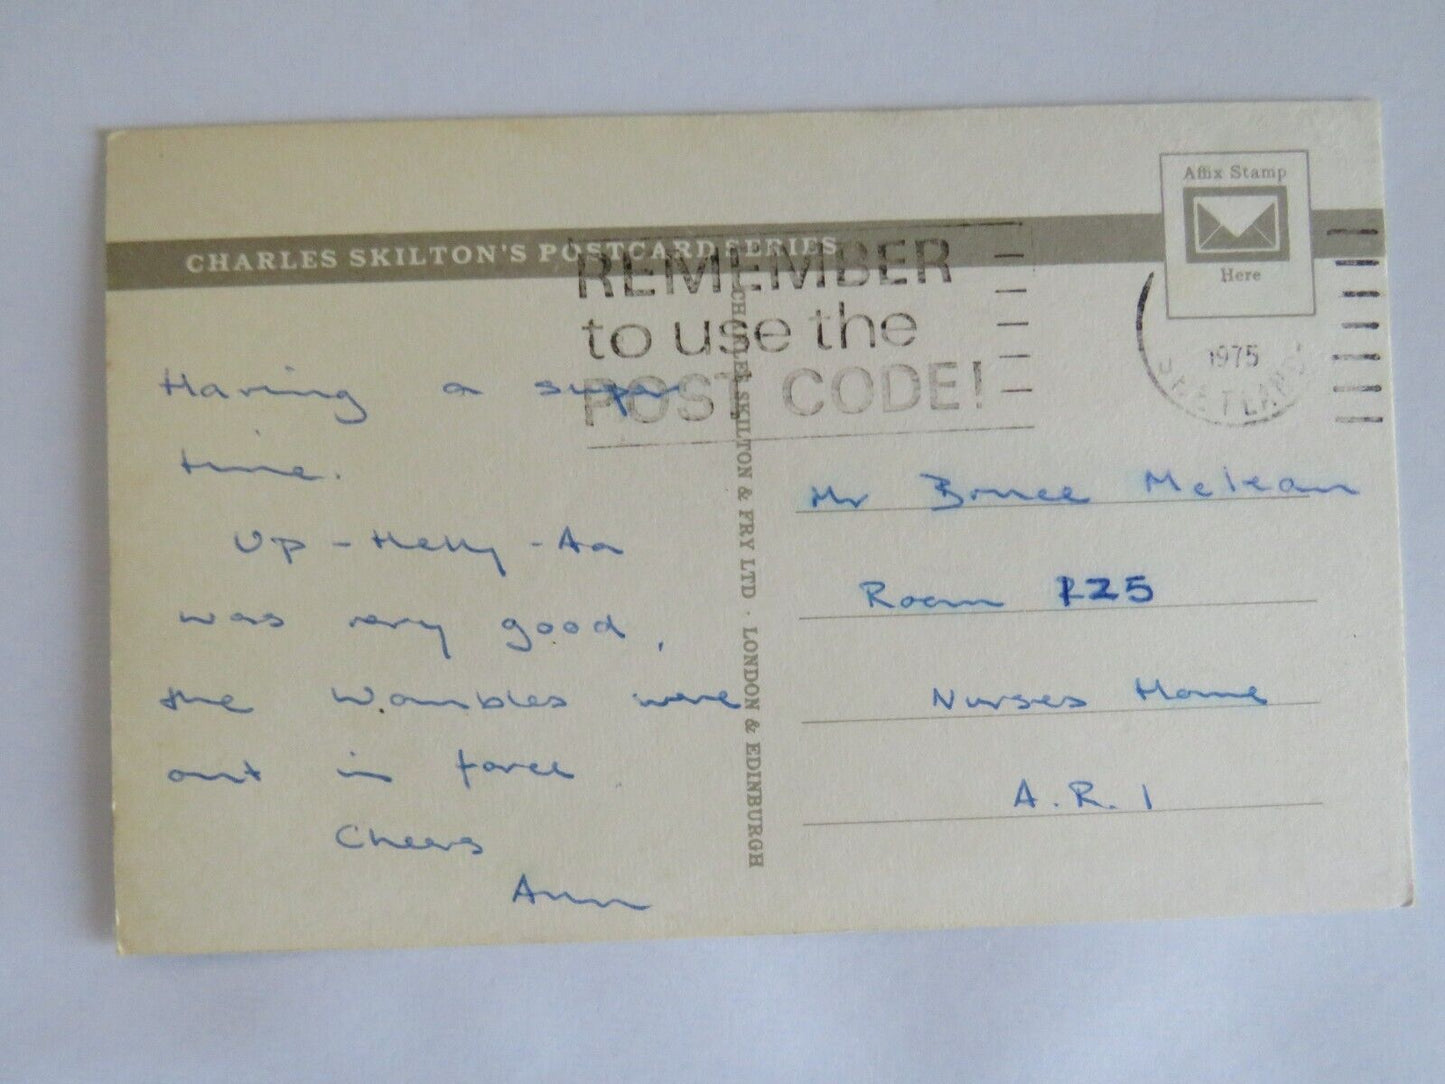 CHARLES SKILTON'S POSTCARD SERIES
Affix Stamp
Here
REMEMBER
to use the
POST CODE!
1975
SHETLAND
CHARLES SKILTON & FRY LTD · LONDON & EDINBURGH
Having a super
time.
Up-Helly-Aa
was very good,
the Wombles were
out in force
Cheers
Ann
Mr Bruce McLean
Room 125
Nurses Home
A.R.I